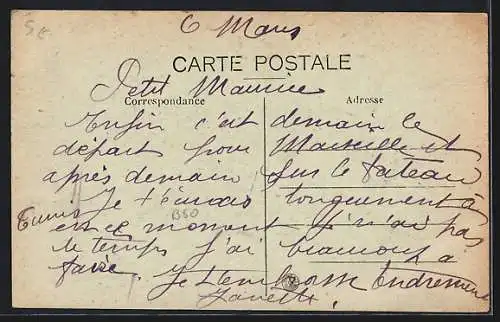 5 €
6 Mars
CARTE POSTALE
Petit Maurice
Correspondance
Adresse
Enfin c'est demain le
départ pour Marseille et
après demain sur le bateau
Je t'écrirais longuement à
Tunis
B50
est ce moment je n'ai pas
le temps j'ai beaucoup à
faire. Je t'embrasse tendrement